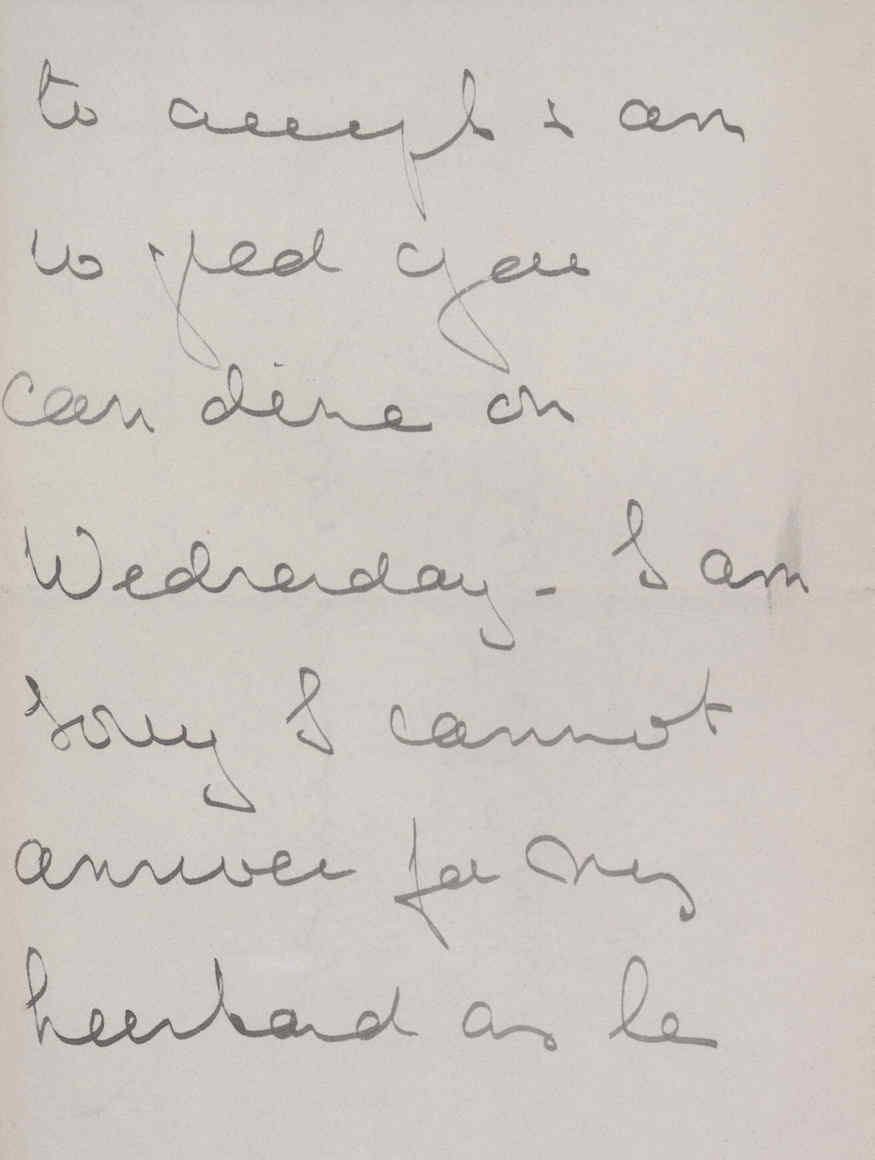 to accept & am
so glad you
can dine on
Wednesday - I am
sorry I cannot
answer for my
husband as he